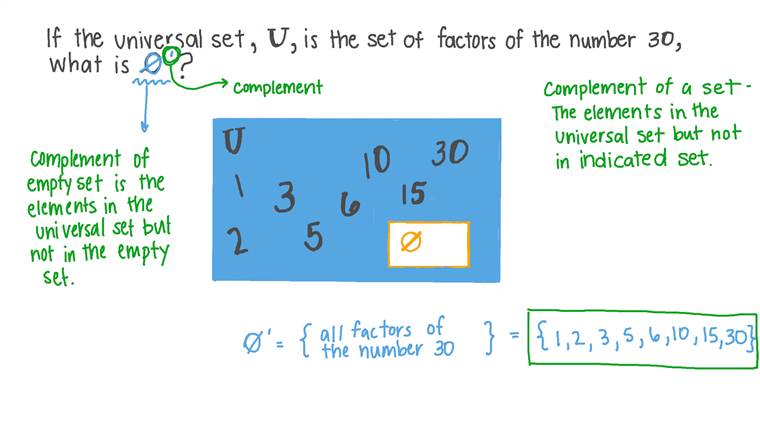 If the universal set, U, is the set of factors of the number 30,
what is ∅'?
Complement
Complement of a set -
The elements in the
universal set but not
in indicated set.
Complement of
empty set is the
elements in the
universal set but
not in the empty
set.
U
10 30
1 3 6 15
2 5 ∅
∅' = { all factors of
the number 30 } = {1, 2, 3, 5, 6, 10, 15, 30}